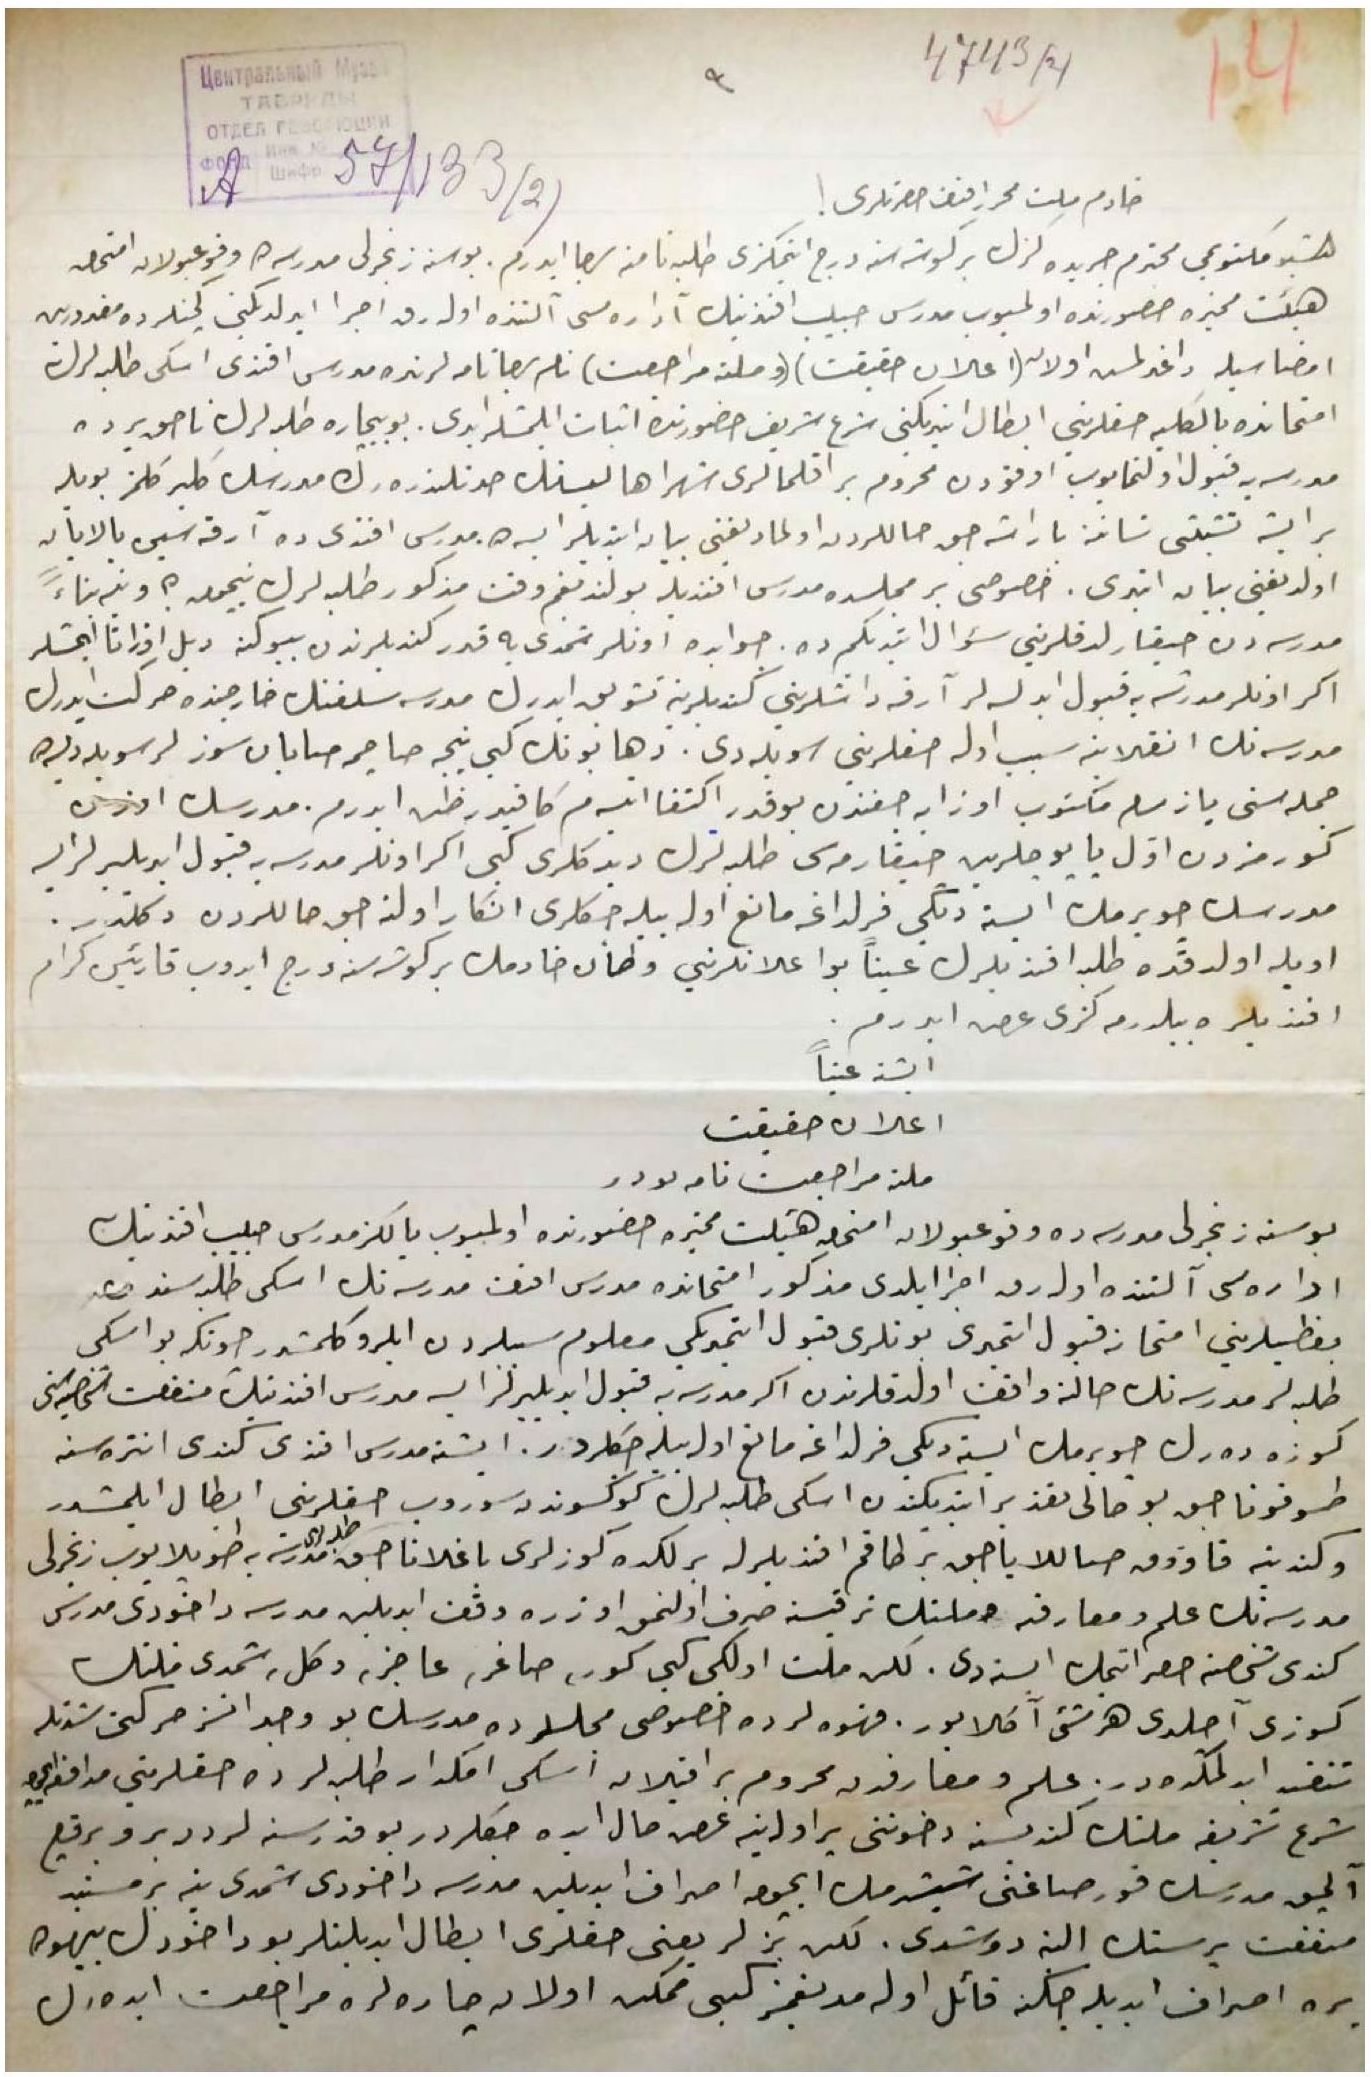 4743/2/
14
Центральный Музей
ТАВРИДЫ
ОТДЕЛ РЕВОЛЮЦИИ
ФОНД Инв. №
Шифр
А 57/133/2/
خادم ملت محرر افندی حضرتلری!
اشبو مکتوبمی محترم جریده کزك بر کوشه سنه درج ایتمکزی طلبه نامنه رجا ایدرم. بو سنه زنجرلی مدرسه ده وقوعبولان امتحان
هیئت ممیزه حضورنده اولمیوب مدرس حبیب افندینك اداره سی آلتنده اوله رق اجرا ایدلدیکنی کچنلرده مغدورین
امضاسیله داغدلمش اولان (اعلان حقیقت) (و ملته مراجعت) نام رجانامه لرنده مدرس افندی اسکی طلبه لرك
امتحانده بالکلیه حقلرینی ابطال ایتدیکنی شرع شریف حضورنده اثبات ایلمشلر ایدی. بو بیچاره طلبه لرك ناحق یرده
مدرسه یه قبول اولنمایوب اوقودن محروم براقلمالری شهر اهالیسنك حدتلندره رك مدرسك کلیر کلمز بویله
بر ایشه تشبثی شاننه یاراشه جق حاللردن اولمادیغنی بیان ایتدیلر ایسه ده مدرس افندی ده آرقه سی یالایان
اولدیغنی بیان ایتدی. خصوصی بر مجلسده مدرس افندیله بولندیغم وقت مذکور طلبه لرك نیچون و نیه بناءً
مدرسه دن چیقارلدقلرینی سؤال ایتدیکم ده. جوابده اونلر شمدی یه قدر کندیلرندن بیوکنه دیل اوزاتا ایتمشلر
اکر اونلر مدرسه یه قبول ایدلسه لر آرقه داشلرینی کندیلرینه تشویق ایدرك مدرسه سلفنك خارجنده حرکت ایدرك
مدرسه نك انقلابنه سبب اوله جقلرینی سویله دی. دها بونك کبی نیجه صاچمه صاپان سوزلر سویله دیسه ده
جمله سنی یازسام مکتوب اوزایه جغندن بو قدر اکتفا ایتسه م کافیدر ظن ایدرم. مدرسك
کورمزدن اول پاپوجلرین چیقارمه سی طلبه لرك دیدکلری کبی اکر اونلر مدرسه یه قبول ایدیلیرلر ایسه
مدرسك چویرمك ایسته دیکی فرلداغه مانع اوله بیله جکلری انکار اولنه جق حاللردن دکلدر.
اویله اولدقده طلبه افندیلرك عیناً بو اعلانلرینی وطن خادمك بر کوشه سنه درج ایدوب قارئین کرام
افندیلره بیلدرمه کزی عرض ایدرم.
ایشته عیناً
اعلان حقیقت
ملته مراجعت نامه بودر
بو سنه زنجرلی مدرسه ده وقوعبولان امتحان هیئت ممیزه حضورنده اولمیوب یالکز مدرس حبیب افندینك
اداره سی آلتنده اوله رق اجرا ایلدی مذکور امتحانده مدرس افندی مدرسه نك اسکی طلبه سندن
بعضیلرینی امتحانه قبول ایتمدی بونلری قبول ایتمدیکی معلوم سببلردن ایلرو کلمشدر چونکه بو اسکی
طلبه لر مدرسه نك حالنه واقف اولدقلرندن اکر مدرسه یه قبول ایدیلیرلر ایسه مدرس افندینك منفعت شخصیه سنی
کوزه ده رك چویرمك ایسته دیکی فرلداغه مانع اوله بیله جکلردر. ایشته مدرس افندی کندی انتره سنه
طوقوناجق بو حالی تقدیر ایتدیکندن اسکی طلبه لرك کوکسوندن سوروب حقلرینی ابطال ایلمشدر
و کندینه قاووق صاللایاجق بر طاقم افندیلرله برلکده کوزلری باغلاناجق طلبه لری مدرسه یه طوپلایوب زنجرلی
مدرسه نك علم و معارفه و ملتك ترقیسنه صرف اولنمق اوزره وقف ایدیلن مدرسه داخودی مدرس
کندی شخصنه حصر ایتمك ایسته دی. لکن ملت اولکی کبی کور، صاغر، عاجز، دکل، شمدی ملتك
کوزی آچلدی هر شیئی آکلایور. قهوه لرده خصوصی مجلسلرده مدرسك بو وجدانسز حرکتی شدتله
تنقید ایدلمکده در. علم و معارفدن محروم براقیلان اسکی امکدار طلبه لر ده حقلرینی مدافعه ایچون
شرع شریفه ملتك کندیسنه دخونتی بر اولدینه عرض حال ایده جکلردر بو قدر سنه لردر بر و برقیع
آلچق مدرسك قورصاغنی شیشیرمك ایچون اصراف ایدیلن مدرسه داخودی شمدی ینه بر مستبد
منفعت پرستك الینه دوشدی. لکن بزلر یعنی حقلری ابطال ایدیلنلر بو داخودك بیهوده
یره اصراف ایدیله جکنه قائل اوله مدیغمز کبی ممکن اولان چاره لره مراجعت ایده رك